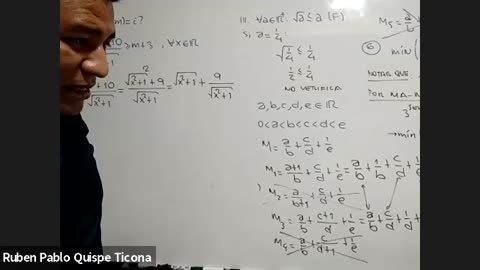 m) = ¿?
≥ m+3 , ∀x∈ℝ
+10 / √x²+1 = √x²+1 ² + 9 / √x²+1 = √x²+1 + 9/√x²+1
III. ∀a∈ℝ⁺. √a ≤ a (F)
Si a = 1/4:
√1/4 ≤ 1/4
1/2 ≤ 1/4
NO VERIFICA
a, b, c, d, e ∈ ℝ
0<a<b<c<d<e
M = a/b + c/d + 1/e
M₁ = a+1/b + c/d + 1/e = a/b + 1/b + c/d + 1/e
M₂ = a/b+1 + c/d + 1/e
M₃ = a/b + c+1/d + 1/e = a/b + c/d + 1/d +
M₄ = a/b + c/d+1 + 1/e
M₅ = a/b
⑥ min (
NOTAR QUE:
POR MA-M
→ min (
Ruben Pablo Quispe Ticona